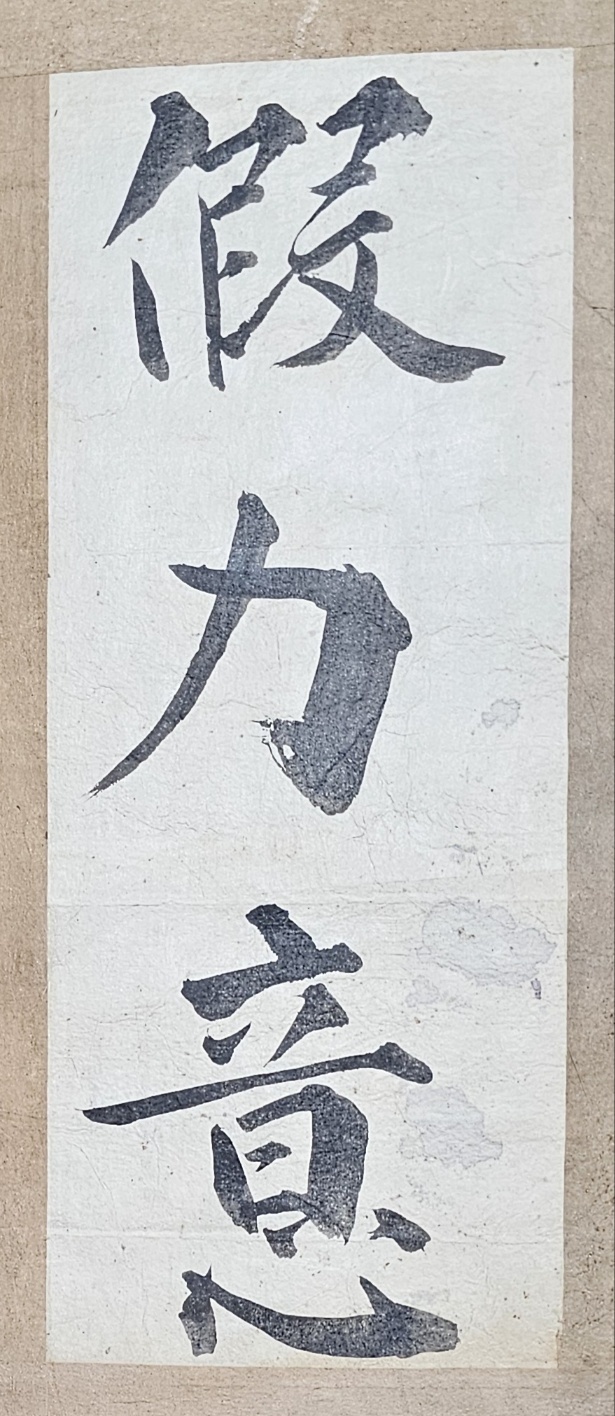 假力意